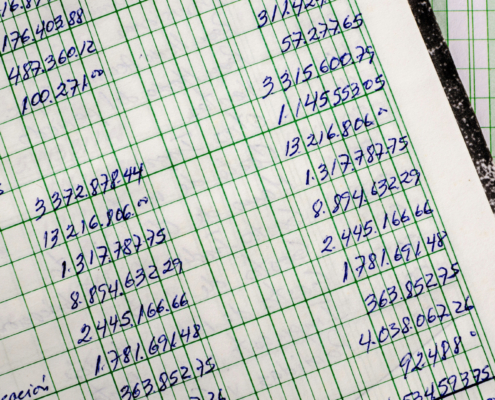 176.403.88
487.360.12
100.271.00
3372.878.44
13.216.806.00
1.317.787.75
8.894.632.29
2.445.166.66
1.781.691.48
363.852.75
57.277.65
3315.600.79
1.145.553.05
13.216.806.00
1.317.787.75
8.894.632.29
2.445.166.66
1.781.691.48
363.852.75
4.038.067.26
92.488.0